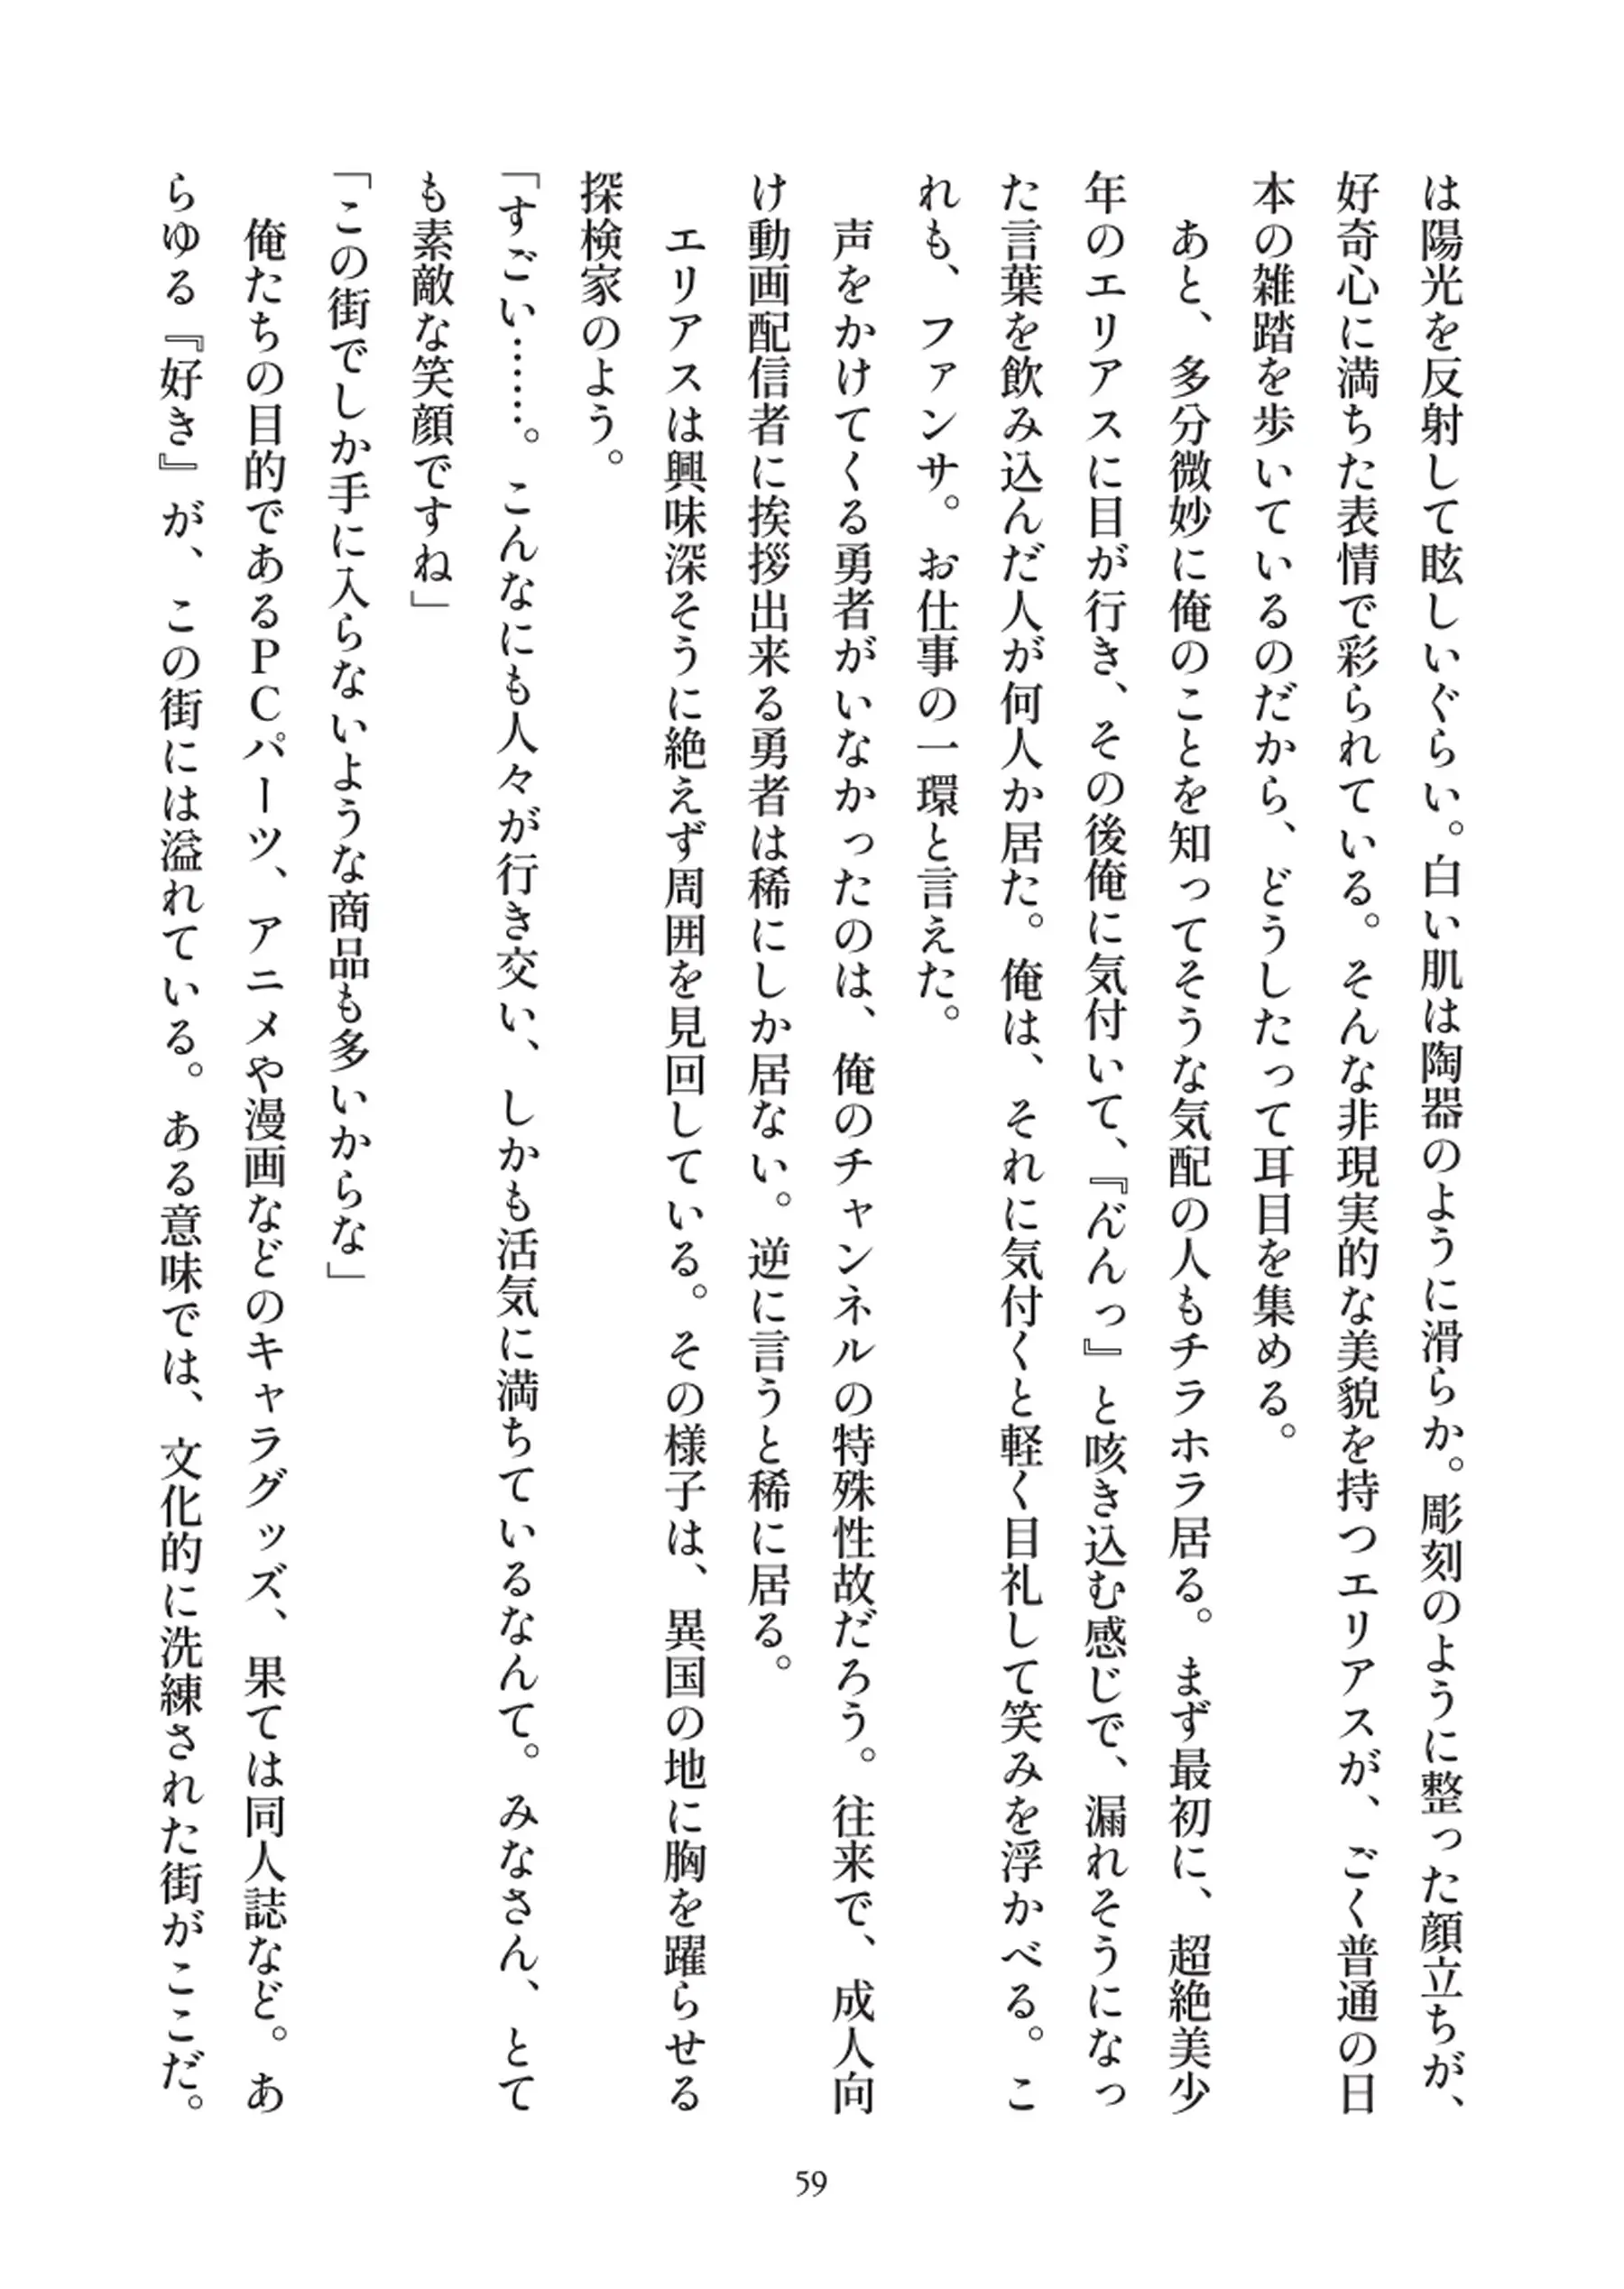 は陽光を反射して眩しいぐらい。白い肌は陶器のように滑らか。彫刻のように整った顔立ちが、
好奇心に満ちた表情で彩られている。そんな非現実的な美貌を持つエリアスが、ごく普通の日
本の雑踏を歩いているのだから、どうしたって耳目を集める。
あと、多分微妙に俺のことを知ってそうな気配の人もチラホラ居る。まず最初に、超絶美少
年のエリアスに目が行き、その後俺に気付いて、『ん゛んっ』と咳き込む感じで、漏れそうになっ
た言葉を飲み込んだ人が何人か居た。俺は、それに気付くと軽く目礼して笑みを浮かべる。こ
れも、ファンサ。お仕事の一環と言えた。
声をかけてくる勇者がいなかったのは、俺のチャンネルの特殊性故だろう。往来で、成人向
け動画配信者に挨拶出来る勇者は稀にしか居ない。逆に言うと稀に居る。
エリアスは興味深そうに絶えず周囲を見回している。その様子は、異国の地に胸を躍らせる
探検家のよう。
「すごい……。こんなにも人々が行き交い、しかも活気に満ちているなんて。みなさん、とて
も素敵な笑顔ですね」
「この街でしか手に入らないような商品も多いからな」
俺たちの目的であるPCパーツ、アニメや漫画などのキャラグッズ、果ては同人誌など。あ
らゆる『好き』が、この街には溢れている。ある意味では、文化的に洗練された街がここだ。
59